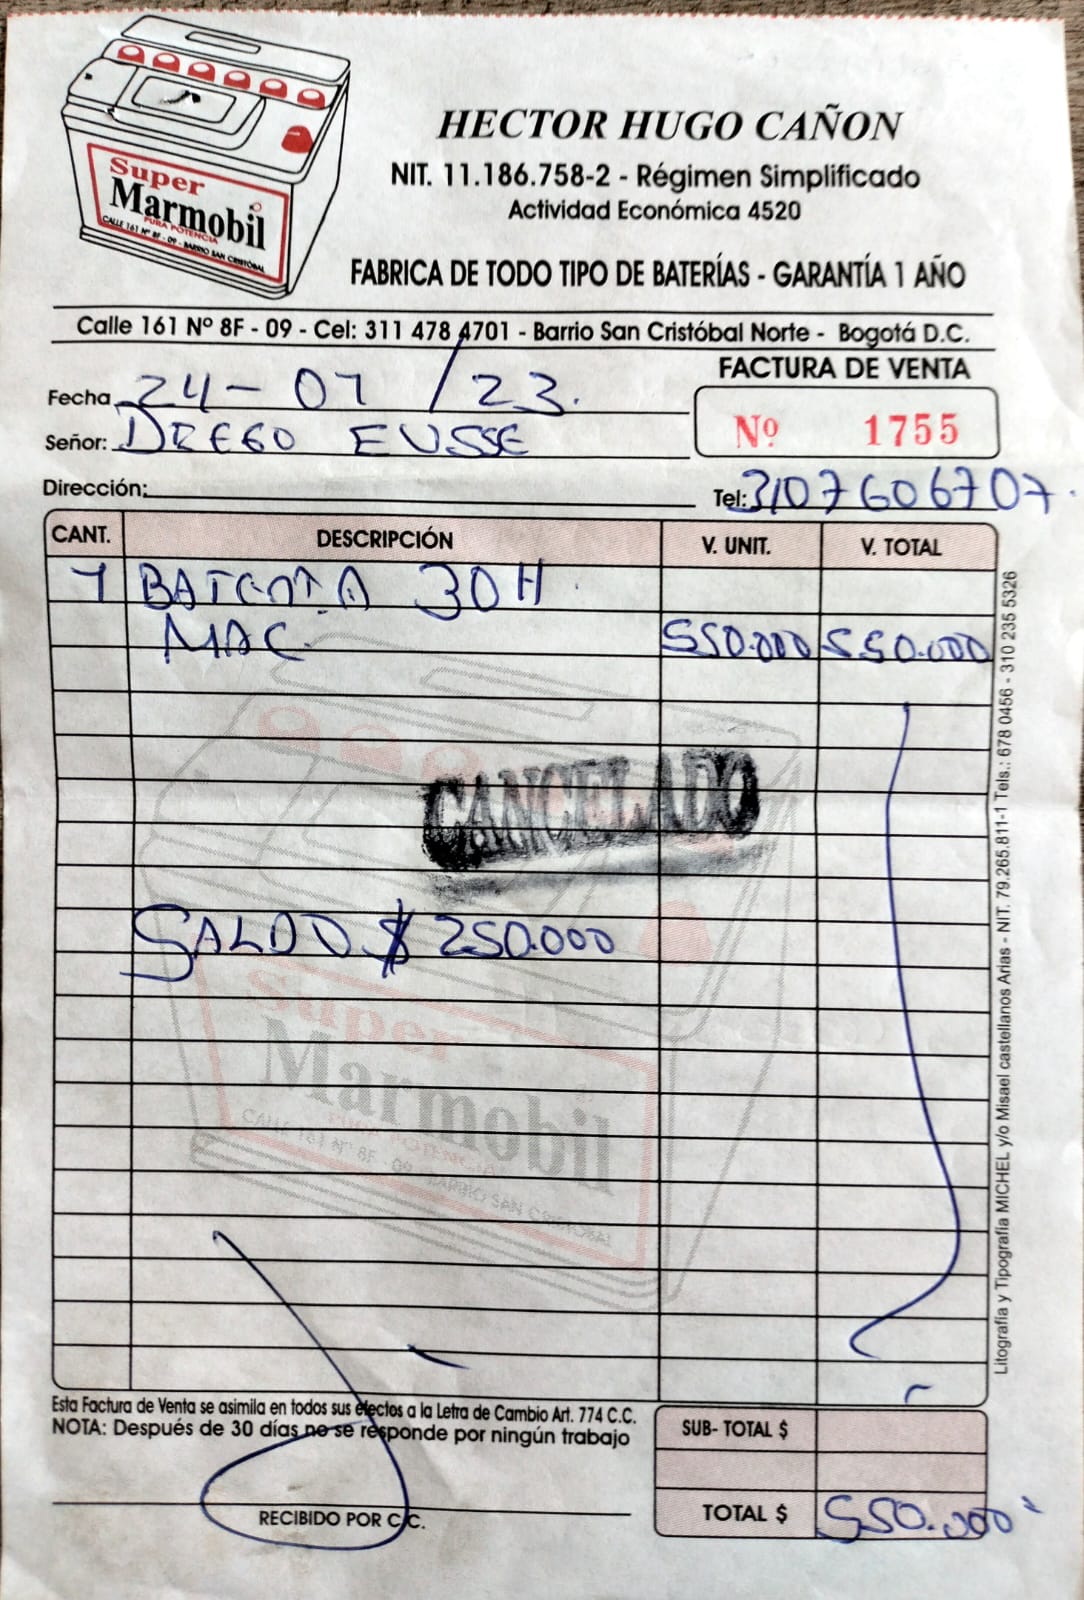 Super
Marmobil
PURA POTENCIA
CALLE 161 Nº 8F - 09 - BARRIO SAN CRISTÓBAL
HECTOR HUGO CAÑON
NIT. 11.186.758-2 - Régimen Simplificado
Actividad Económica 4520
FABRICA DE TODO TIPO DE BATERÍAS - GARANTÍA 1 AÑO
Calle 161 Nº 8F - 09 - Cel: 311 478 4701 - Barrio San Cristóbal Norte - Bogotá D.C.
FACTURA DE VENTA
Fecha 24 - 07 / 23.
Nº 1755
Señor: DIEGO EUSSE
Dirección: Tel: 3107606707.
CANT. DESCRIPCIÓN V. UNIT. V. TOTAL
1 BATERIA 30H
MAC 550.000 550.000
CANCELADO
SALDO $ 250.000
Super
Marmobil
PURA POTENCIA
CALLE 161 Nº 8F - 09 - BARRIO SAN CRISTÓBAL
Esta Factura de Venta se asimila en todos sus efectos a la Letra de Cambio Art. 774 C.C.
NOTA: Después de 30 días no se responde por ningún trabajo
SUB- TOTAL $
TOTAL $ 550.000
RECIBIDO POR C.C.
Litografía y Tipografía MICHEL y/o Misael castellanos Arias - NIT. 79.265.811-1 Tels.: 678 0456 - 310 235 5326